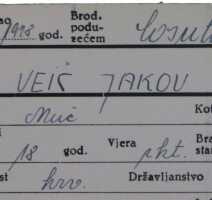 god. Brod. podu-zećem
VEIĆ JAKOV
Muć Kot
18 god. Vjera rkt. Bra
st hrv. Državljanstvo